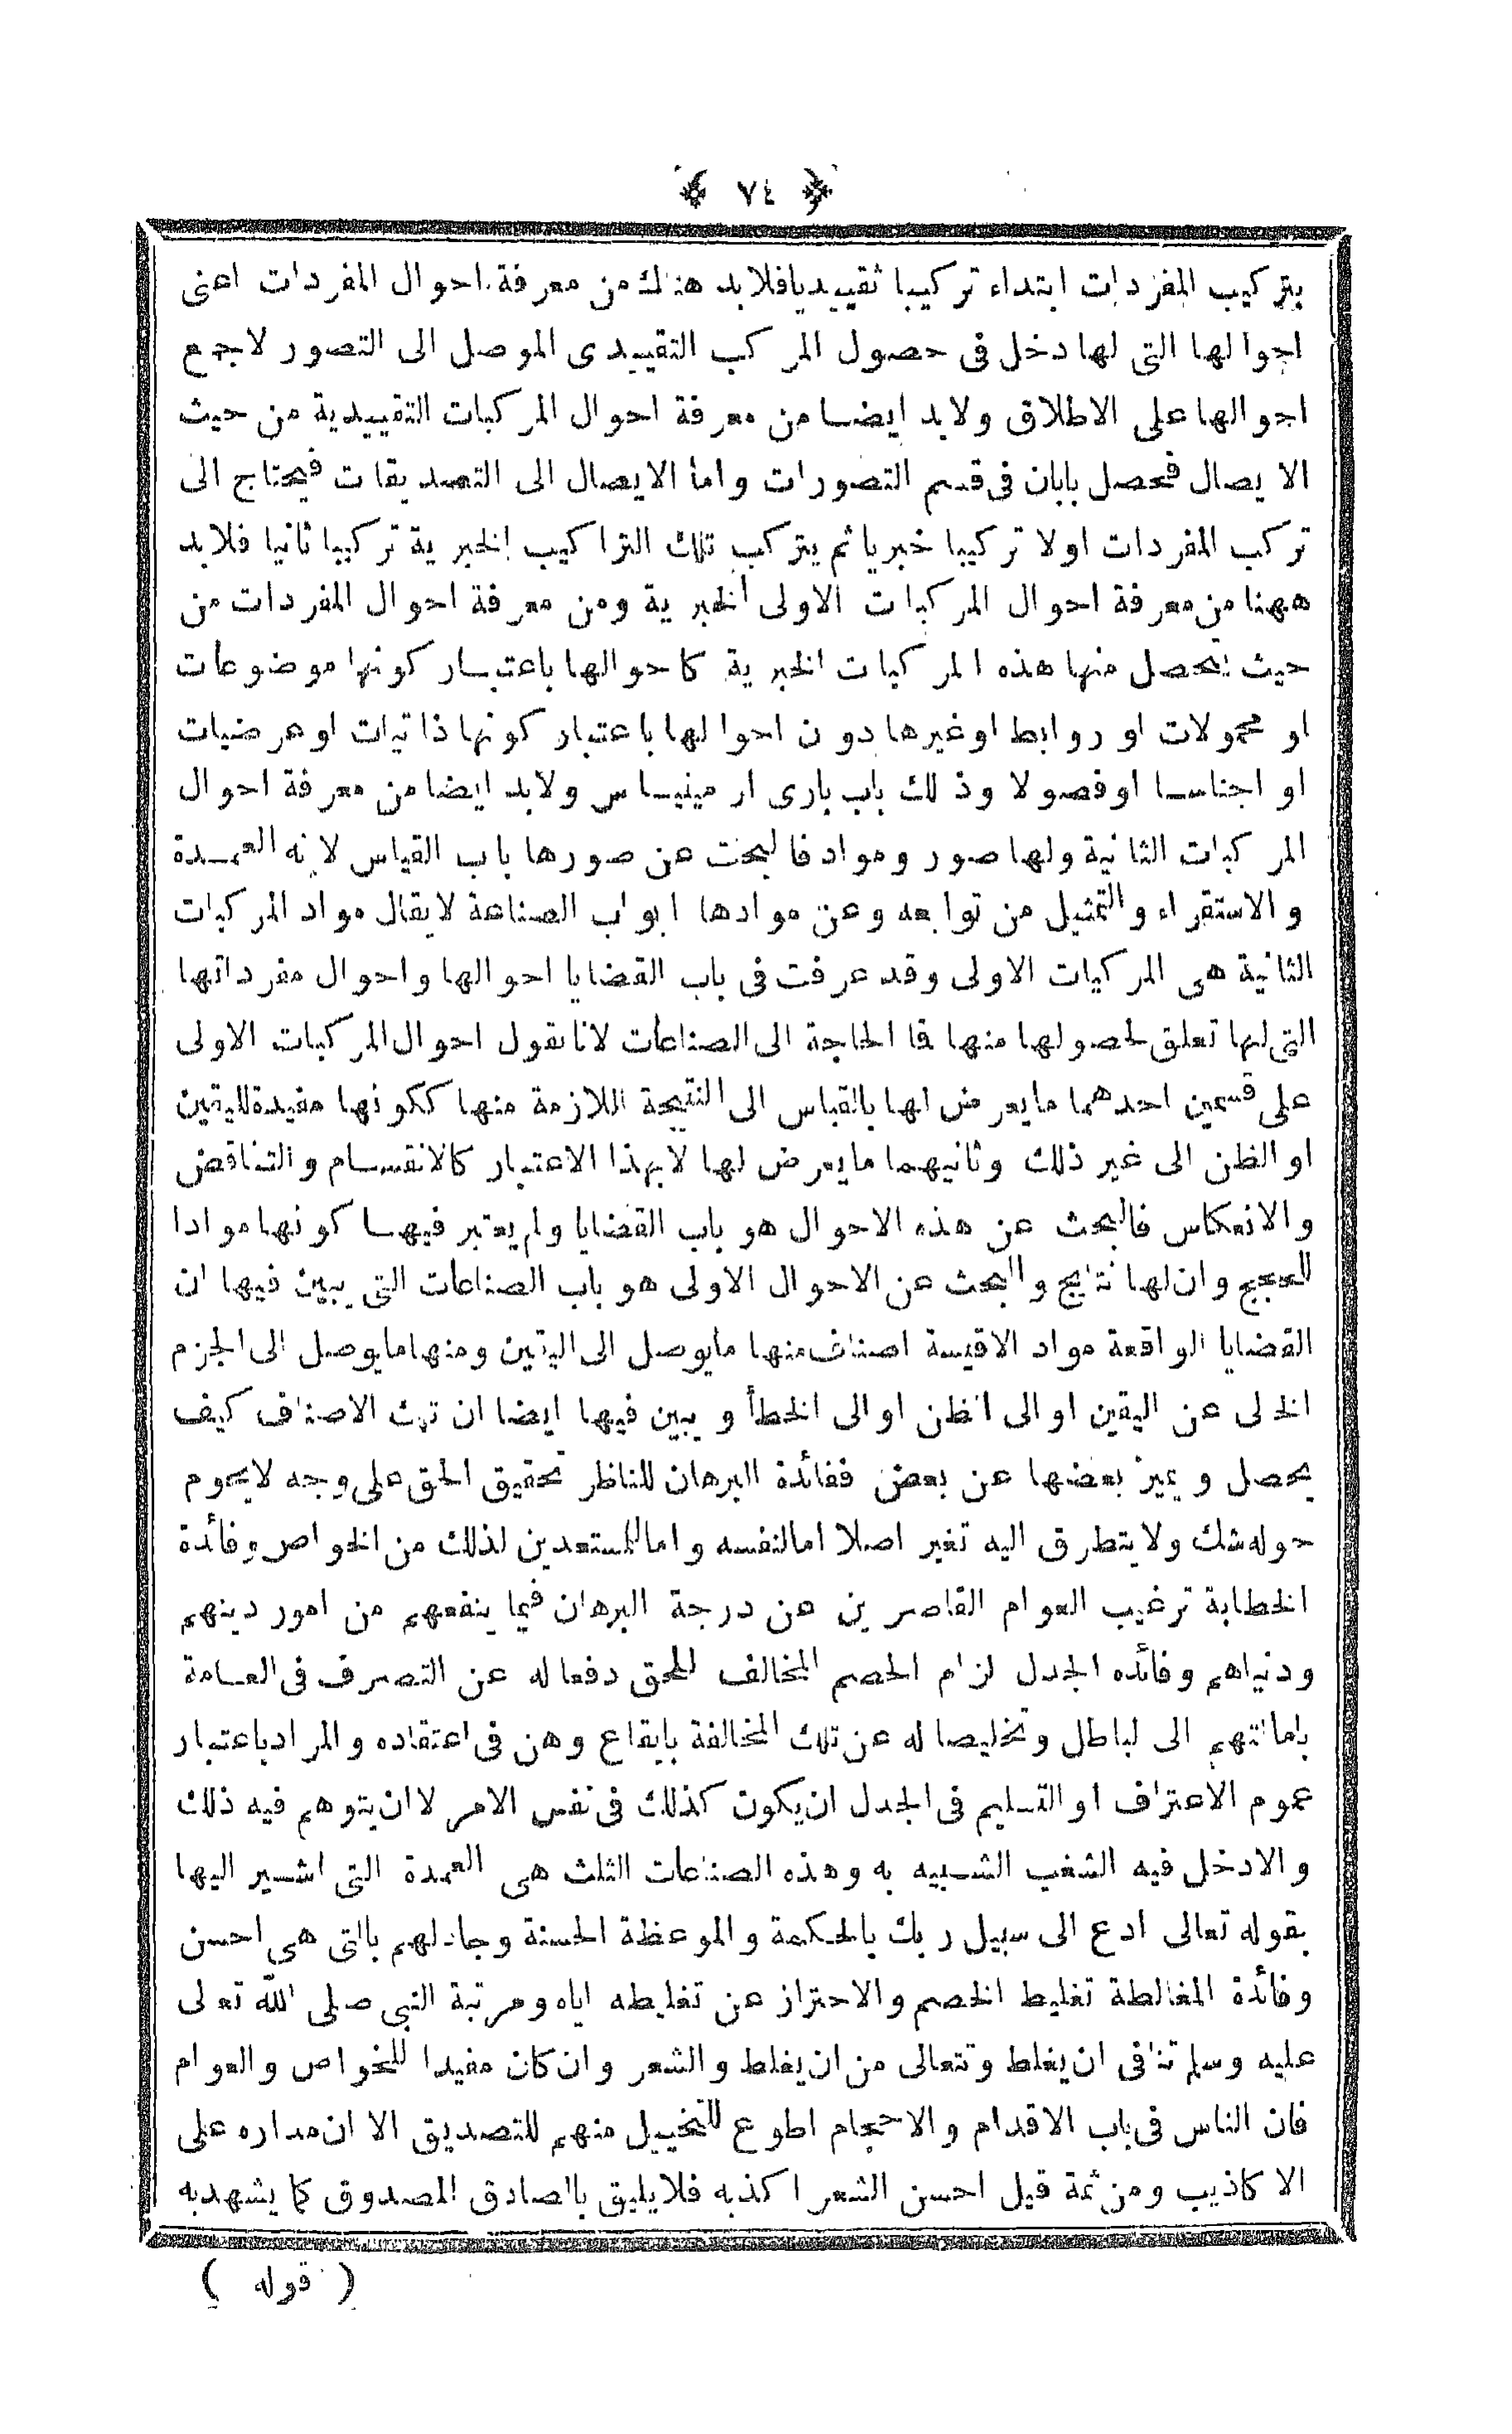 ﴿ ٧٤ ﴾
بتركيب المفردات ابتداء تركيبا تقييديا فلابد هناك من معرفة احوال المفردات اعنى
احوالها التى لها دخل فى حصول المركب التقييدى الموصل الى التصور لاجمع
احوالها على الاطلاق ولابد ايضا من معرفة احوال المركبات التقييدية من حيث
الايصال فحصل بابان فى قسم التصورات واما الايصال الى التصديقات فيحتاج الى
تركب المفردات اولا تركيبا خبريا ثم يتركب تلك التراكيب الخبرية تركيبا ثانيا فلابد
ههنا من معرفة احوال المركبات الاولى الخبرية ومن معرفة احوال المفردات من
حيث يتحصل منها هذه المركبات الخبرية كاحوالها باعتبار كونها موضوعات
او محمولات او روابط او غيرها دون احوالها باعتبار كونها ذاتيات او عرضيات
او اجناسا او فصولا وذلك باب بارى ارمينياس ولابد ايضا من معرفة احوال
المركبات الثانية ولها صور ومواد فالبحث عن صورها باب القياس لانه العمدة
والاستقراء والتمثيل من توابعه وعن موادها ابواب الصناعة لايقال مواد المركبات
الثانية هى المركبات الاولى وقد عرفت فى باب القضايا احوالها واحوال مفرداتها
التى لها تعلق لحصولها منها فا الحاجة الى الصناعات لانا نقول احوال المركبات الاولى
على قسمين احدهما مايعرض لها بالقياس الى النتيجة اللازمة منها ككونها مفيدة لليقين
او الظن الى غير ذلك وثانيهما مايعرض لها لابهذا الاعتبار كالانقسام والتناقض
والانعكاس فالبحث عن هذه الاحوال هو باب القضايا ولم يعتبر فيها كونها موادا
للحجج وان لها نتايج والبحث عن الاحوال الاولى هو باب الصناعات التى يبين فيها ان
القضايا الواقعة مواد الاقيسة اصناف منها مايوصل الى اليقين ومنها مايوصل الى الجزم
الخالى عن اليقين او الى الظن او الى الخطأ ويبين فيها ايضا ان تلك الاصناف كيف
يحصل ويميز بعضها عن بعض ففائدة البرهان للناظر تحقيق الحق على وجه لايحوم
حوله شك ولايتطرق اليه تغير اصلا اما لنفسه واما للمستعدين لذلك من الخواص وفائدة
الخطابة ترغيب العوام القاصرين عن درجة البرهان فيما ينفعهم من امور دينهم
ودنياهم وفائده الجدل لزام الخصم المخالف للحق دفعا له عن التصرف فى العامة
بامالتهم الى لباطل وتخليصا له عن تلك المخالفة بايقاع وهن فى اعتقاده والمراد باعتبار
عموم الاعتراف او التسليم فى الجدل ان يكون كذلك فى نفس الامر لا ان يتوهم فيه ذلك
والادخل فيه الشغب الشبيه به وهذه الصناعات الثلث هى العمدة التى اشير اليها
بقوله تعالى ادع الى سبيل ربك بالحكمة والموعظة الحسنة وجادلهم بالتى هى احسن
وفائدة المغالطة تغليط الخصم والاحتراز عن تغليطه اياه ومرتبة النبى صلى الله تعالى
عليه وسلم تنافى ان يغلط وتتعالى من ان يغلط والشعر وان كان مفيدا للخواص والعوام
فان الناس فى باب الاقدام والاحجام اطوع للتخييل منهم للتصديق الا ان مداره على
الاكاذيب ومن ثمة قيل احسن الشعر اكذبه فلايليق بالصادق المصدوق كما يشهد به
( قوله )